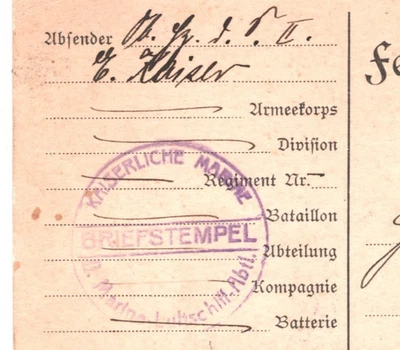 Absender Ob. Hz. d. S. II.
E. Kaiser
Armeekorps
Division
Regiment Nr.
Bataillon
Abteilung
Kompagnie
Batterie
KAISERLICHE MARINE
BRIEFSTEMPEL
Marine-Luftschiff-Abtl.
Fe